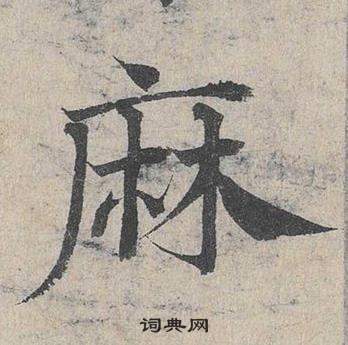 麻
词典网